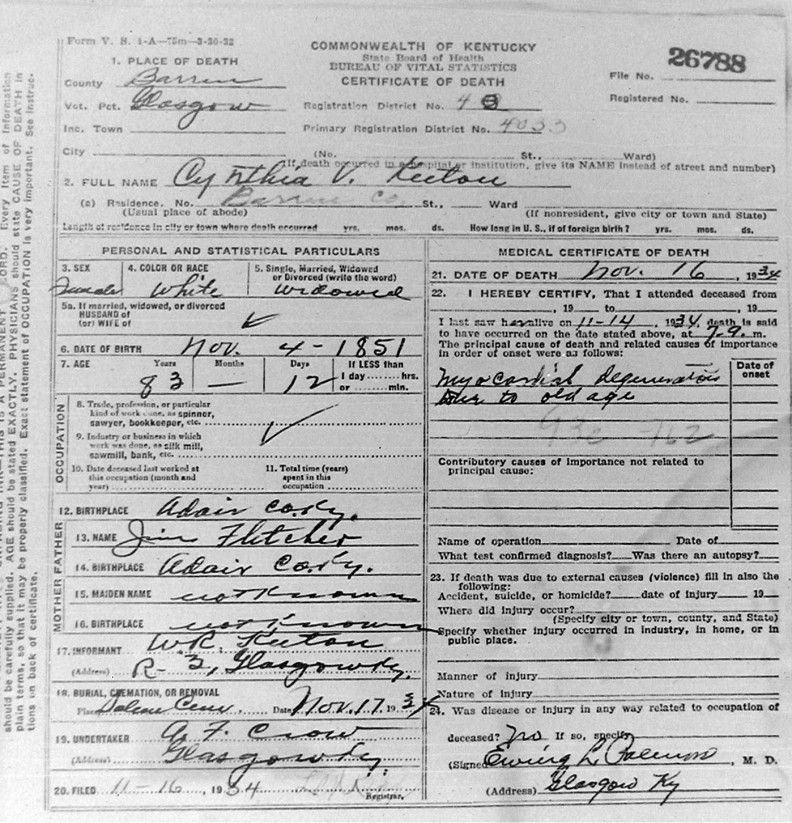 Form V. S. 1-A—75m—3-26-32
COMMONWEALTH OF KENTUCKY
State Board of Health
BUREAU OF VITAL STATISTICS
CERTIFICATE OF DEATH
26788
File No.
Registered No.
1. PLACE OF DEATH
County Barren
Vot. Pct. Glasgow
Registration District No.
Inc. Town
Primary Registration District No. 4033
City (No. St., Ward)
(If death occurred in a hospital or institution, give its NAME instead of street and number)
2. FULL NAME Cynthia V. Keeton
(a) Residence. No. Barren Co. St., Ward
(Usual place of abode) (If nonresident, give city or town and State)
Length of residence in city or town where death occurred yrs. mos. ds. How long in U. S., if of foreign birth? yrs. mos. ds.
PERSONAL AND STATISTICAL PARTICULARS
3. SEX 4. COLOR OR RACE 5. Single, Married, Widowed
or Divorced (write the word)
Female White Widowed
5a. If married, widowed, or divorced
HUSBAND of
(or) WIFE of
6. DATE OF BIRTH Nov. 4-1851
7. AGE Years Months Days If LESS than
83 — 12 1 day hrs.
or min.
OCCUPATION
8. Trade, profession, or particular
kind of work done, as spinner,
sawyer, bookkeeper, etc.
9. Industry or business in which
work was done, as silk mill,
sawmill, bank, etc.
10. Date deceased last worked at
this occupation (month and
year)
11. Total time (years)
spent in this
occupation
12. BIRTHPLACE Adair Co. Ky.
FATHER
13. NAME Jim Fletcher
14. BIRTHPLACE Adair Co. Ky.
MOTHER
15. MAIDEN NAME not known
16. BIRTHPLACE not known
17. INFORMANT W.R. Keeton
(Address) R-3, Glasgow Ky.
18. BURIAL, CREMATION, OR REMOVAL
Place Cem. Date Nov. 17, 1934
19. UNDERTAKER A. F. Crow
(Address) Glasgow Ky.
20. FILED 11-16, 1934
Registrar.
MEDICAL CERTIFICATE OF DEATH
21. DATE OF DEATH Nov. 16, 1934
22. I HEREBY CERTIFY, That I attended deceased from
, 19 to , 19
I last saw her alive on 11-14, 1934 death is said
to have occurred on the date stated above, at m.
The principal cause of death and related causes of importance
in order of onset were as follows:
Date of
onset
Myocardial degeneration
due to old age
Contributory causes of importance not related to
principal cause:
Name of operation Date of
What test confirmed diagnosis? Was there an autopsy?
23. If death was due to external causes (violence) fill in also the
following:
Accident, suicide, or homicide? date of injury 19
Where did injury occur?
(Specify city or town, county, and State)
Specify whether injury occurred in industry, in home, or in
public place.
Manner of injury
Nature of injury
24. Was disease or injury in any way related to occupation of
deceased? No If so, specify
(Signed) Ewing L. Palmore, M. D.
(Address) Glasgow Ky
Every item of information
should be carefully supplied. AGE should be stated EXACTLY. PHYSICIANS should state CAUSE OF DEATH in
plain terms, so that it may be properly classified. Exact statement of OCCUPATION is very important. See instruc-
tions on back of certificate.